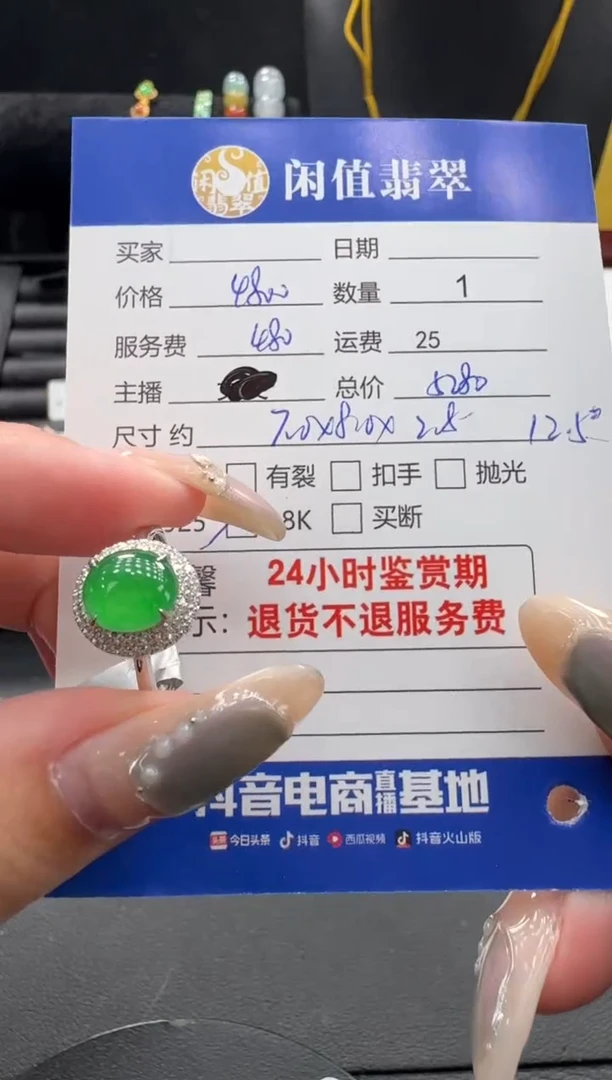 闲值翡翠
闲值翡翠
买家 日期
价格 4800 数量 1
服务费 480 运费 25
主播 总价 5280
尺寸 约 7.0x8.0x 2.5 12.5#
有裂 扣手 抛光
8K 买断
24小时鉴赏期
示：退货不退服务费
抖音电商直播基地
头条 今日头条 抖音 西瓜视频 抖音火山版